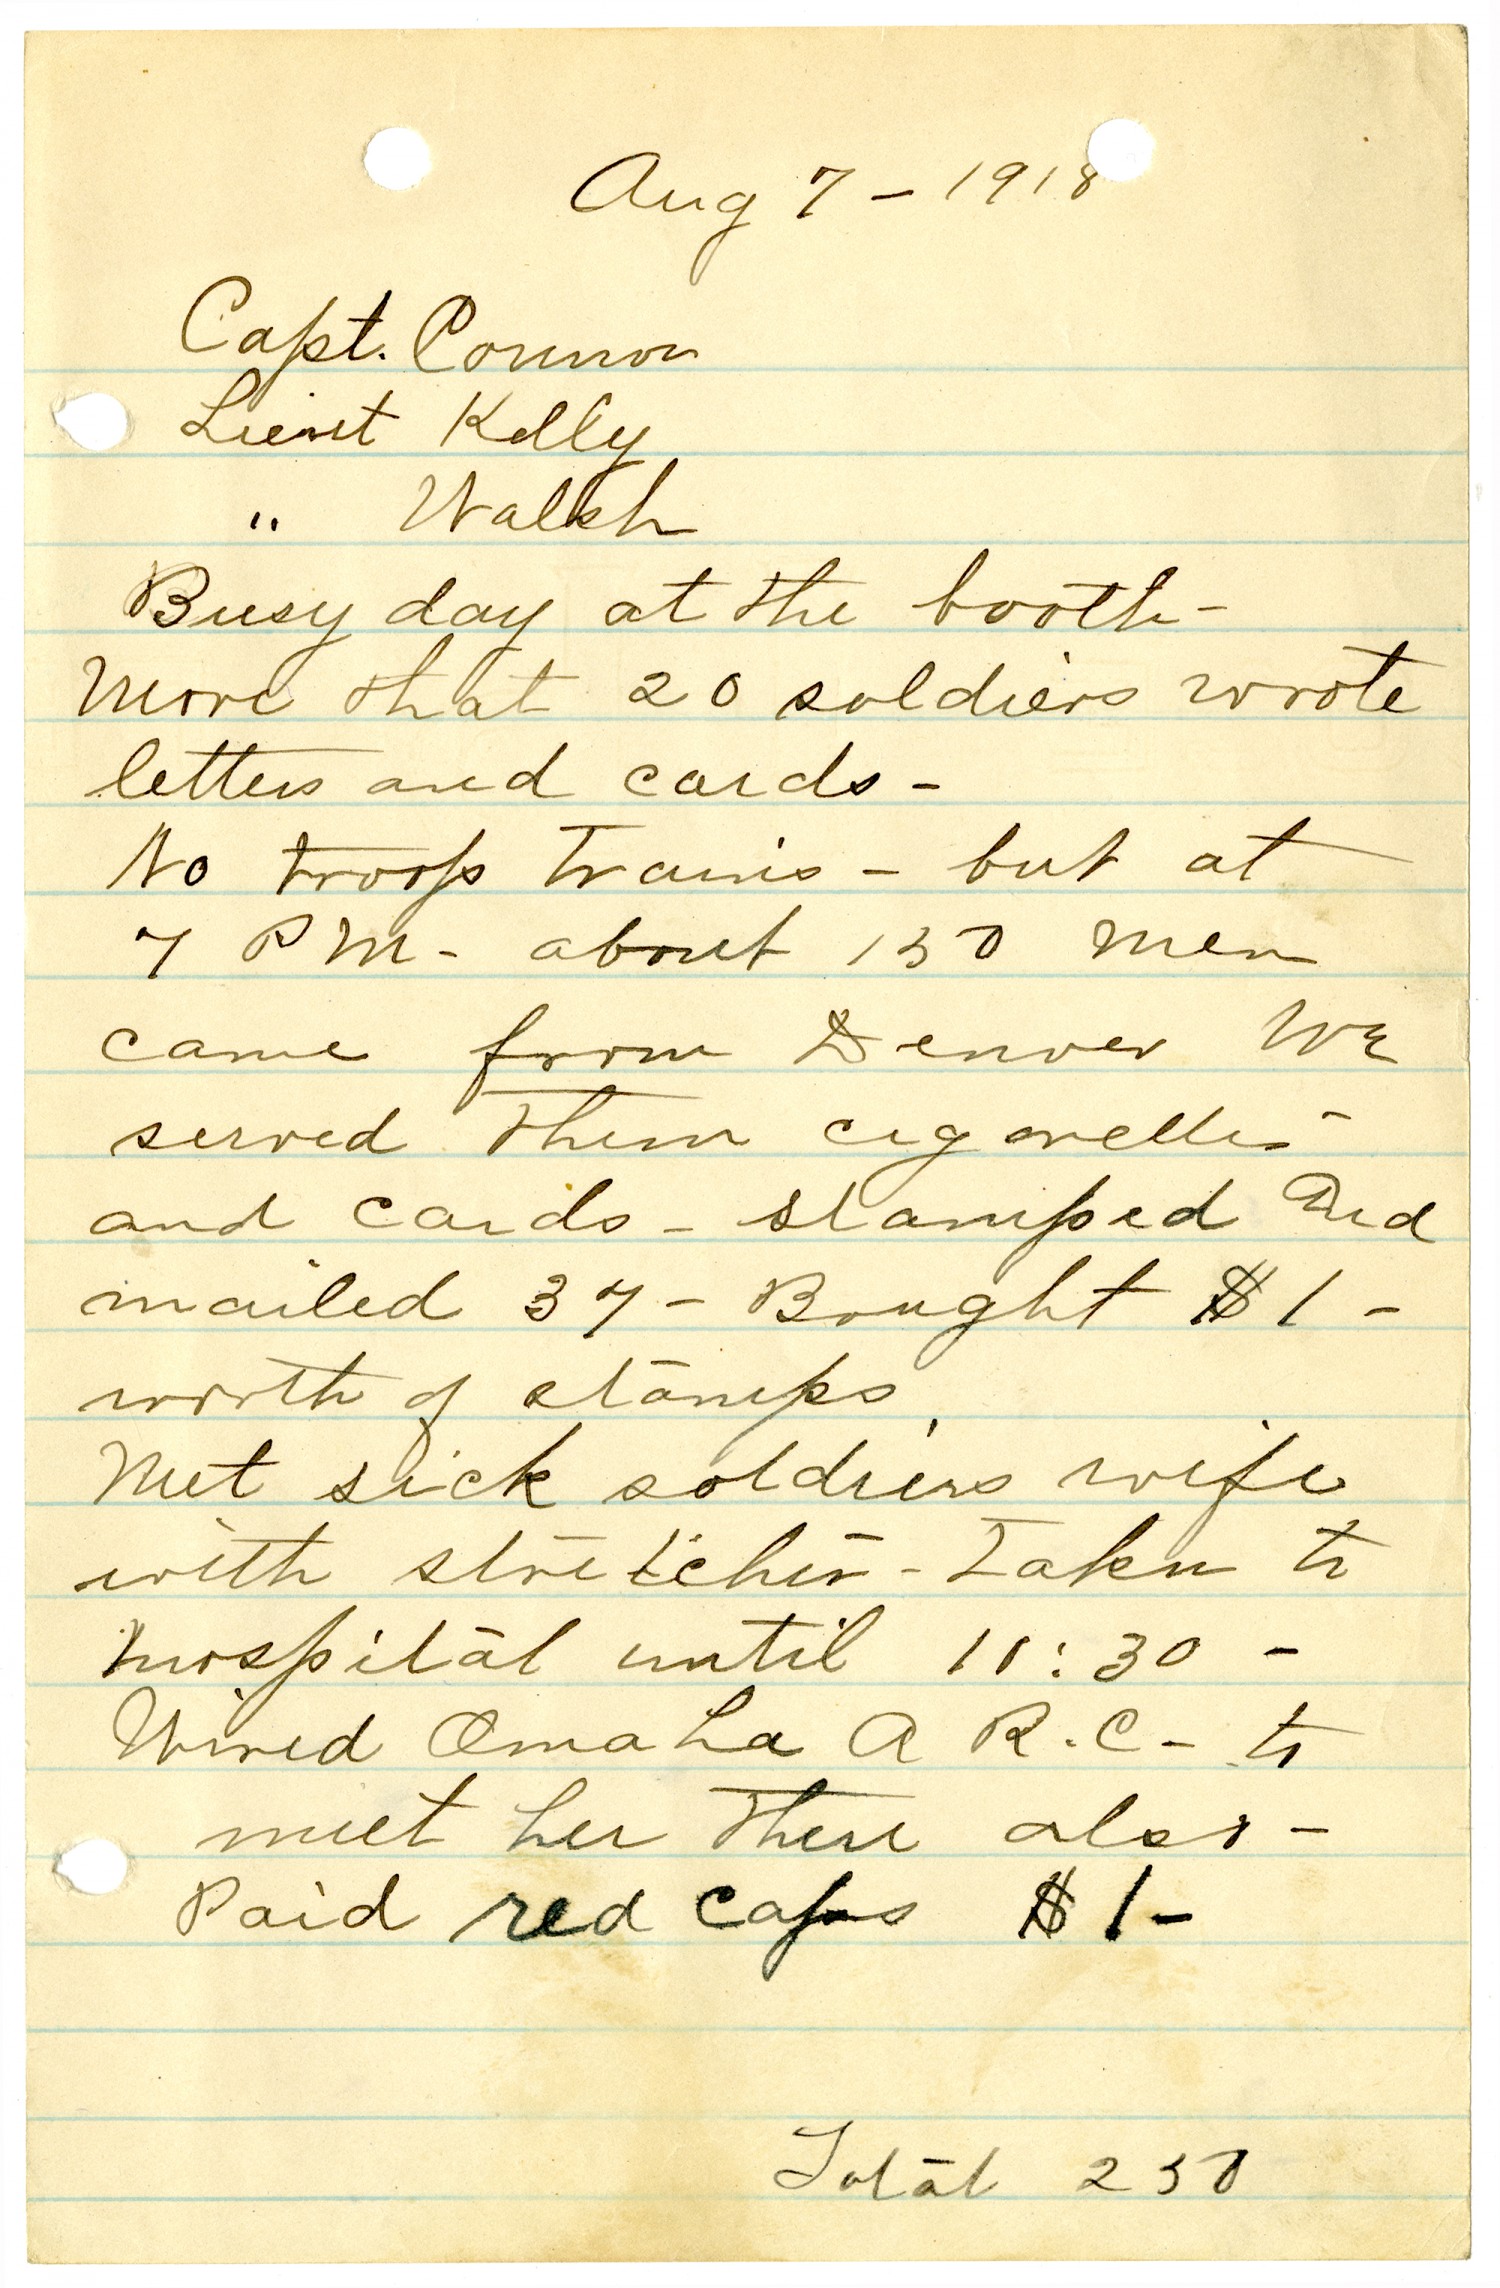 Aug 7 - 1918
Capt. Connon
Lieut Kelly
" Walsh
Busy day at the booth -
More that 20 soldiers wrote
letters and cards -
No troop trains - but at
7 P M - about 150 men
came from Denver We
served them cigarettes -
and cards - stamped and
mailed 37 - Bought $1 -
worth of stamps
Met sick soldier's wife
with stretcher - Taken to
hospital until 11:30 -
Wired Omaha A R.C - to
meet her there also -
Paid red caps $1 -
Total 250